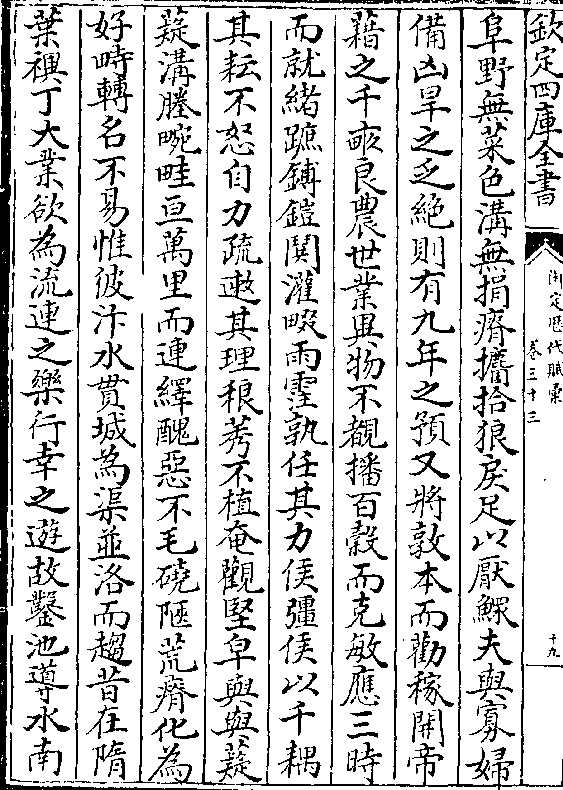 欽定四庫全書
御定歷代賦彙
卷三十三
十九
阜野無菜色溝無捐瘠攟拾狼戾足以厭鰥夫與寡婦
備凶旱之乏絕則有九年之預又將敦本而勸稼開帝
藉之千畝良農世業異物不覩播百穀而克敏應三時
而就緒䠱鎛鎧鬭灌畷雨霔孰任其力侯彊侯以千耦
其耘不怒自力疏遬其理稂莠不植奄觀堅皁與與薿
薿溝塍畹畦亘萬里而連繹醜惡不毛磽陿荒瘠化為
好時轉名不易惟彼汴水貫城為渠並洛而趨昔在隋
葉禩丁大業欲為流連之樂行幸之遊故鑿池導水南